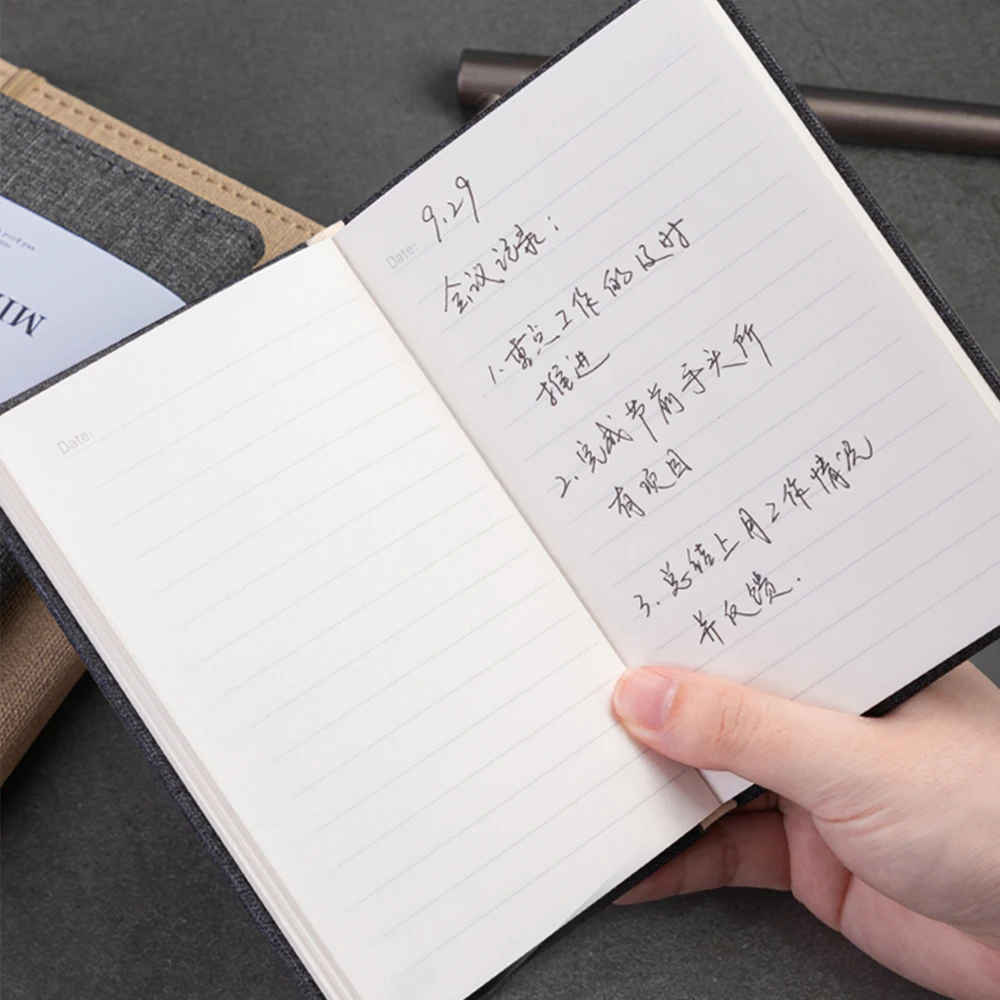 Date:
Date:
9.29
会议记录:
1.重点工作的及时
推进
2.完成节前手头所
有项目
3.总结上月工作情况
并反馈.